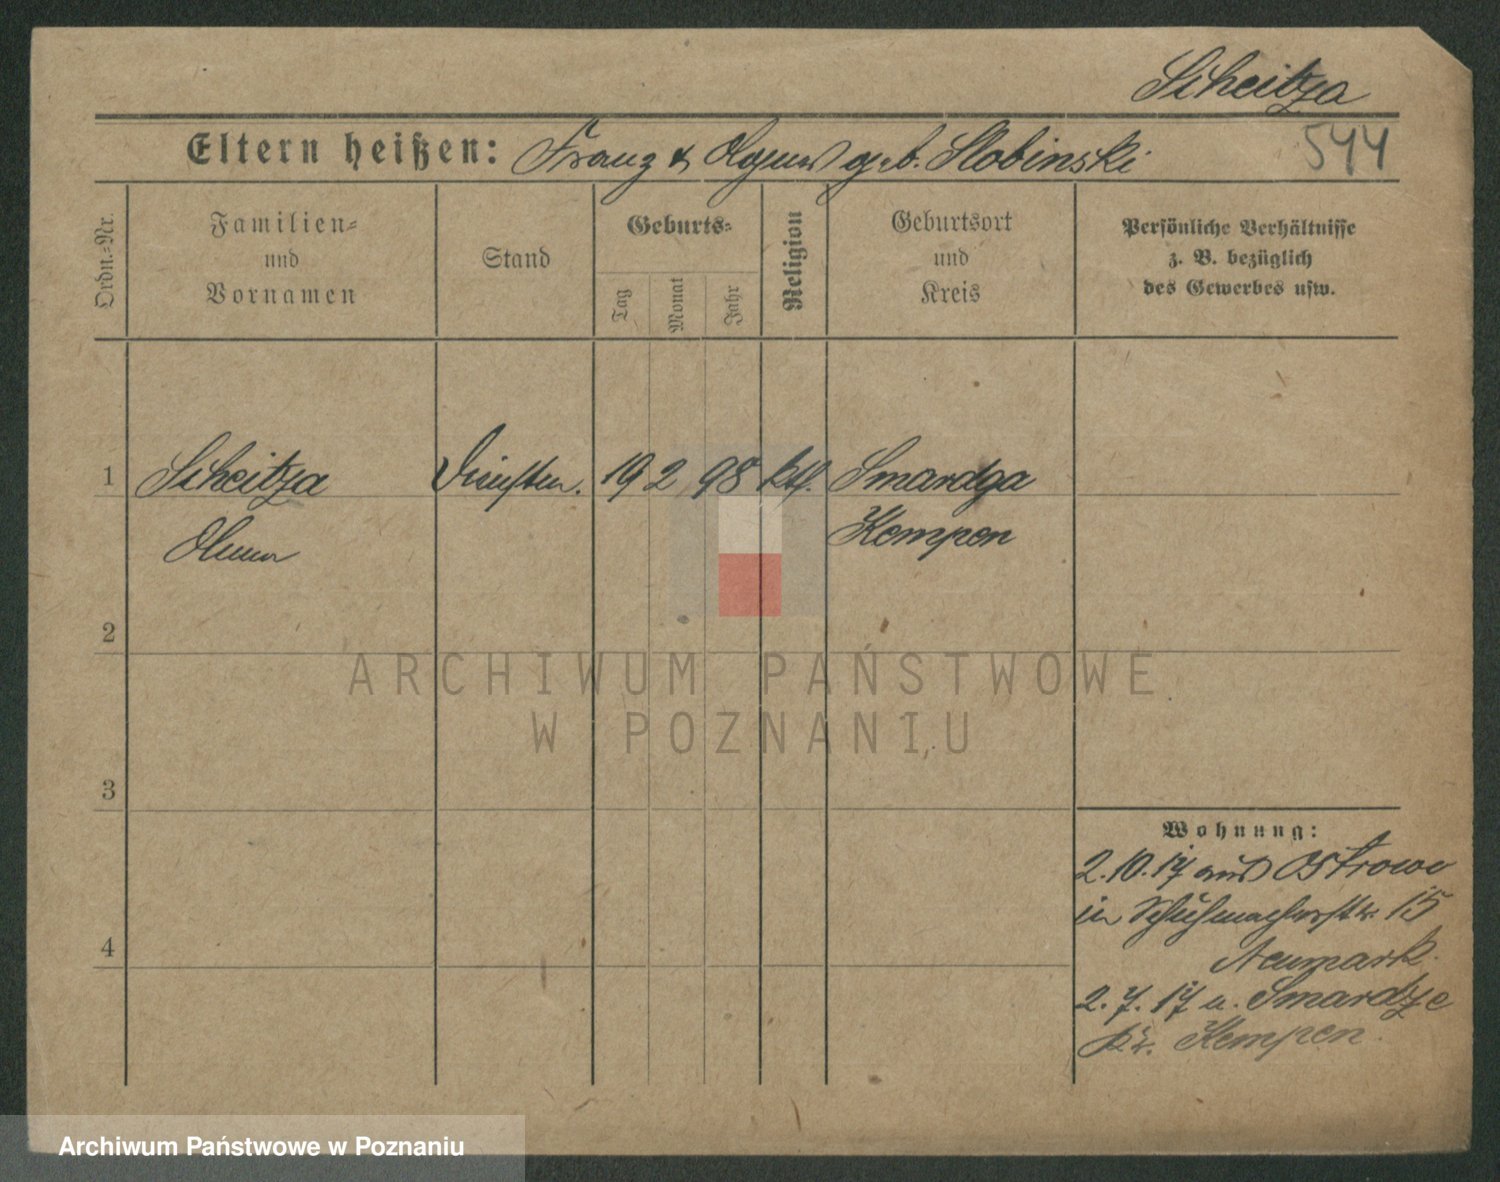 Scheitza
544
Eltern heißen: Franz & geb. Slobinski
Ordn.-Nr.
Familien-
und
Vornamen
Stand
Geburts-
Tag
Monat
Jahr
Religion
Geburtsort
und
Kreis
Persönliche Verhältnisse
z. B. bezüglich
des Gewerbes usw.
1 Scheitza 19 2 98 kth. Smardga
Kempen
2
3
4
Wohnung:
2.10.17 aus Ostrowo
in Schuhmacherstr. 15
Neumark.
2.7.17 n. Smardze
Kr. Kempen.
ARCHIWUM PAŃSTWOWE
W POZNANIU
Archiwum Państwowe w Poznaniu